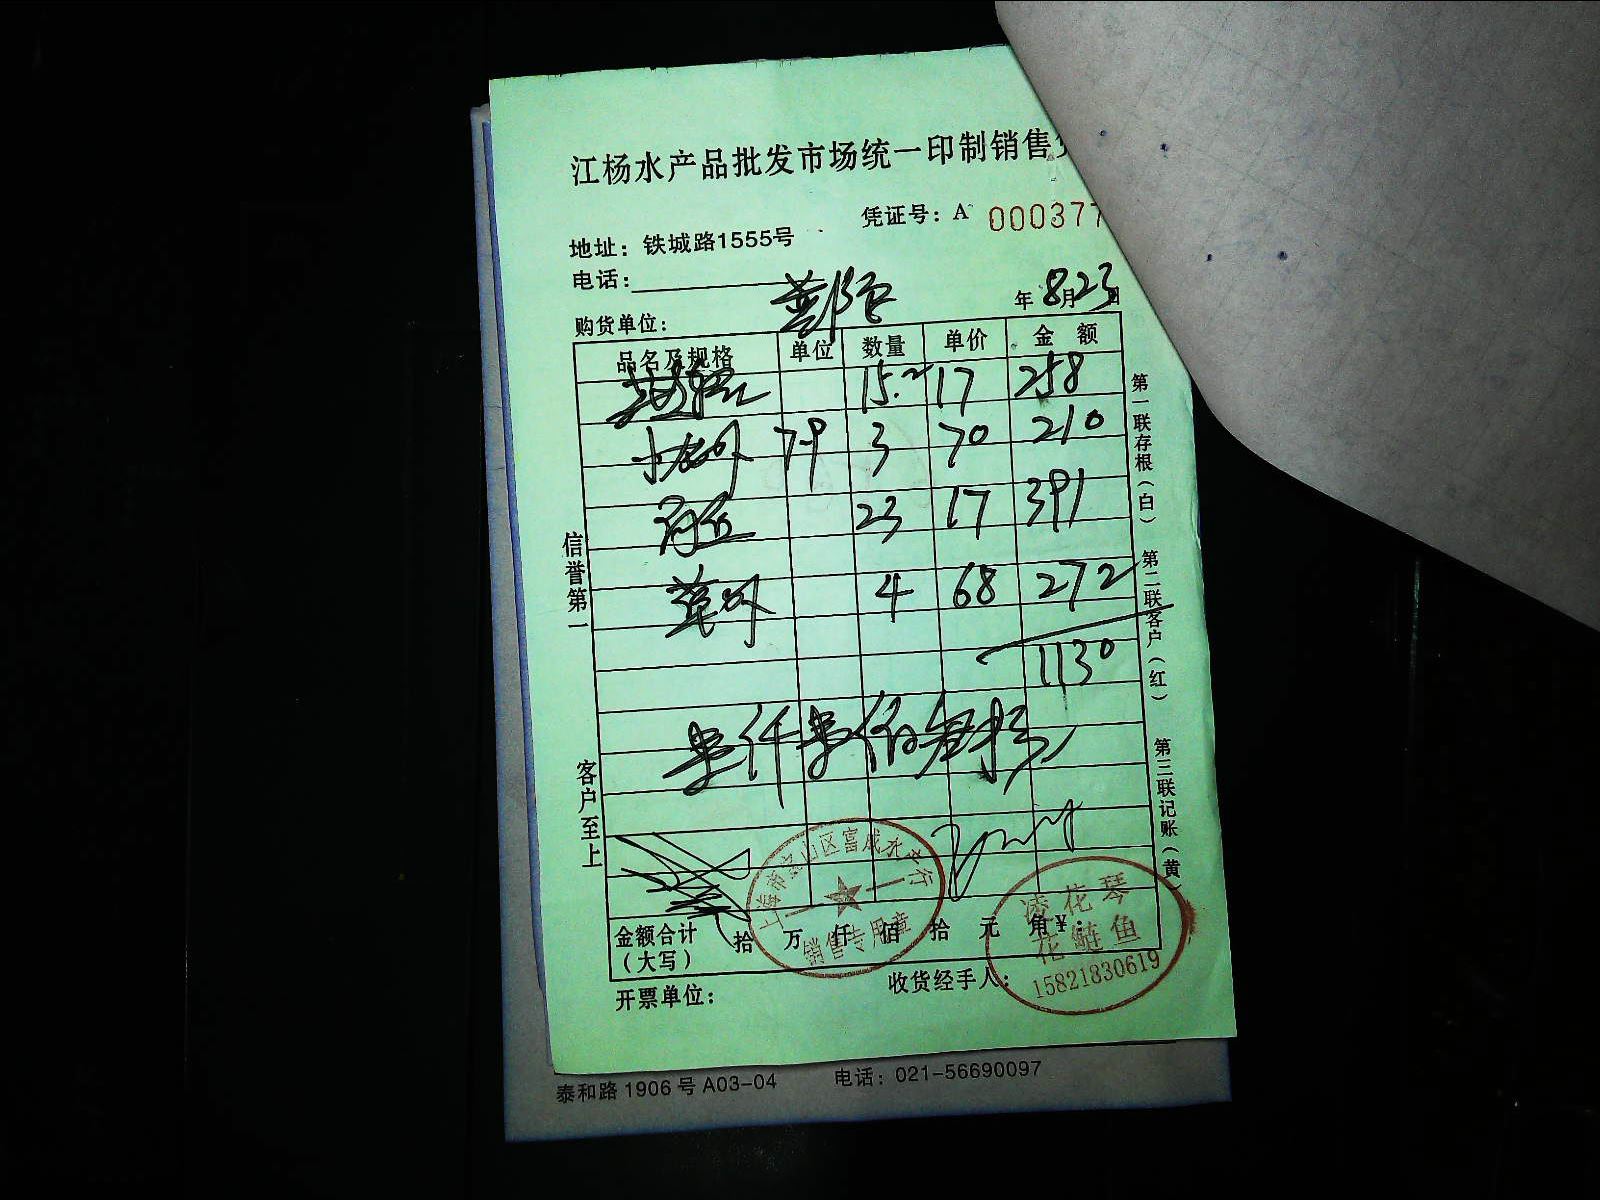 江杨水产品批发市场统一印制销售
凭证号：A 000377
地址：铁城路1555号
电话：
年 8月23日
购货单位：
品名及规格 单位 数量 单价 金额
15.2 17 258
79 3 70 210
23 17 391
4 68 272
1130
壹仟壹佰叁拾
金额合计（大写） 拾 万 仟 佰 拾 元 角 ¥：
开票单位：
收货经手人：
信誉第一
客户至上
第一联存根（白）
第二联客户（红）
第三联记账（黄）
上海市宝山区富成水产行
销售专用章
凌花琴
花鲢鱼
15821830619
泰和路1906号A03-04 电话：021-56690097